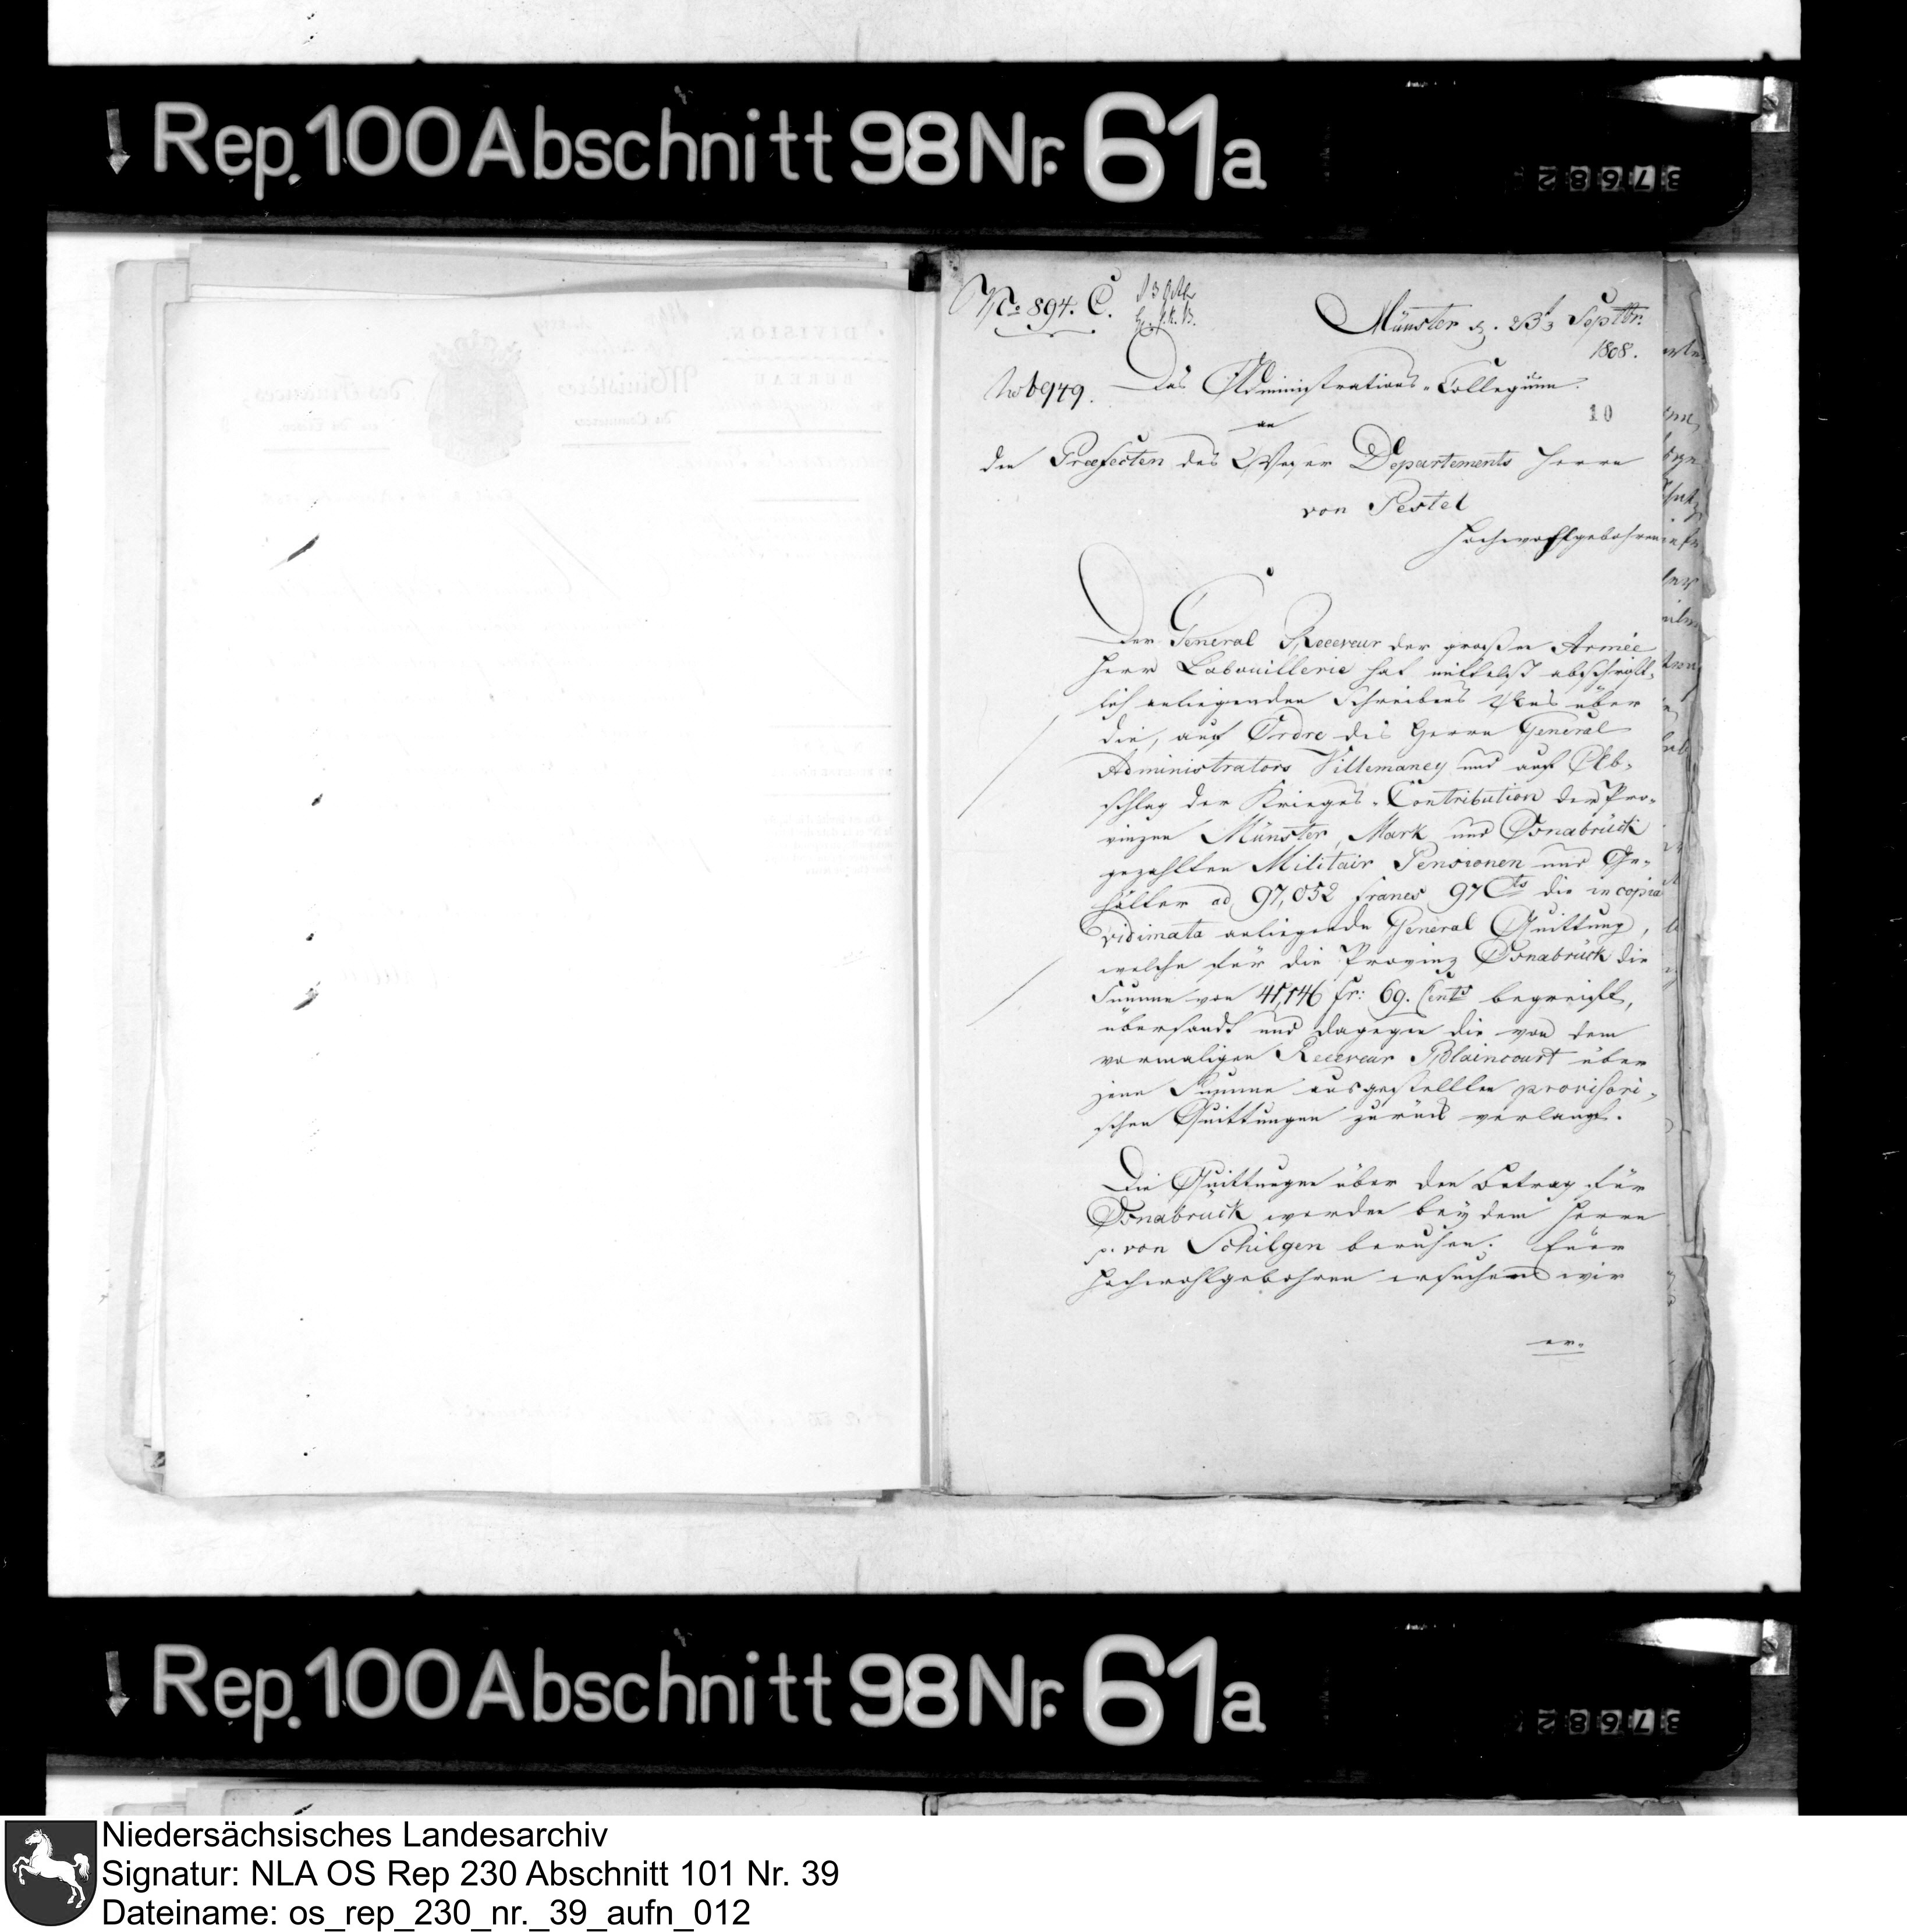 Rep. 100 Abschnitt 98 Nr. 61a
37682
DIVISION.
BUREAU
Ministère des Finances,
du Commerce et du Trésor.
No. 894. C.
Münster d. 23t Septbr.
1808.
6949.
Das Administrations-Collegium
10
an
den Præfecten des Weser Departements Herrn
von Pestel
Hochwohlgebohren
Der General Receveur der großen Armée
Herr Labouillerie hat mittelst abschrift-
lich anliegenden Schreibens Uns über
die, auf Ordre des Herrn General
Administrators Villemaney und auf Ab-
schlag der Krieges-Contribution der Pro-
vinzen Münster, Mark und Osnabrück
gezahlten Militair Pensionen und Ge-
hälter ad 97,052 francs 97 Cts die in copia
vidimata anliegende General Quittung,
welche für die Provinz Osnabrück die
Summe von 41,146 fr: 69. Cents begreift,
übersandt und dagegen die von dem
vormaligen Receveur Blaincourt über
jene Summe ausgestellten provisori-
schen Quittungen zurück verlangt.
Die Quittungen über den Betrag für
Osnabrück werden bey dem Herrn
p. von Schilgen beruhen. Euer
Hochwohlgebohren ersuchen wir
er-
Rep. 100 Abschnitt 98 Nr. 61a
37682
Niedersächsisches Landesarchiv
Signatur: NLA OS Rep 230 Abschnitt 101 Nr. 39
Dateiname: os_rep_230_nr._39_aufn_012